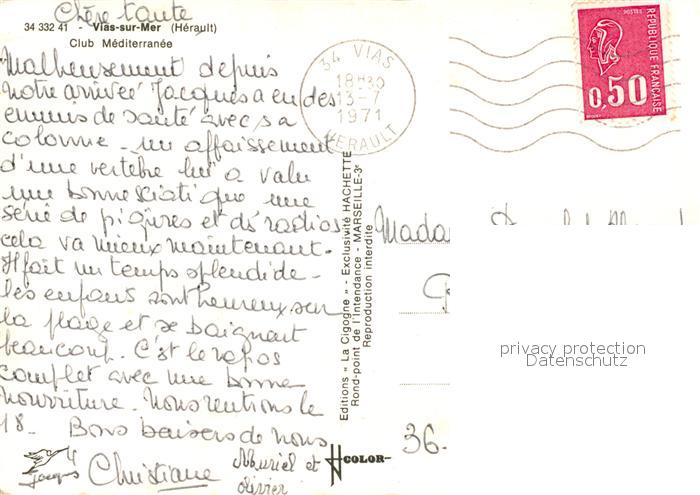 Chère tante
34 332 41 - Vias-sur-Mer (Hérault)
Club Méditerranée
Malheusement depuis
notre arrivée Jacques a eu des
ennuis de santé avec sa
colonne - un affaissement
d'une vertèbre lui a valu
une bonne sciatique une
série de piqûres et ds radios
cela va mieux maintenant.
Il fait un temps splendide -
les enfants sont heureux sur
la plage et se baignent
beaucoup. C'est le repos
complet avec une bonne
nourriture. Nous rentrons le
18. Bons baisers de nous
4
Jacques
Christiane
Muriel et
Olivier
34 VIAS
18H30
13-7
1971
HERAULT
POSTES
REPUBLIQUE FRANÇAISE
0,50
Editions « La Cigogne » - Exclusivité HACHETTE
Rond-point de l'Intendance - MARSEILLE-3e
Reproduction interdite
COLOR
Mada
36.
privacy protection
Datenschutz